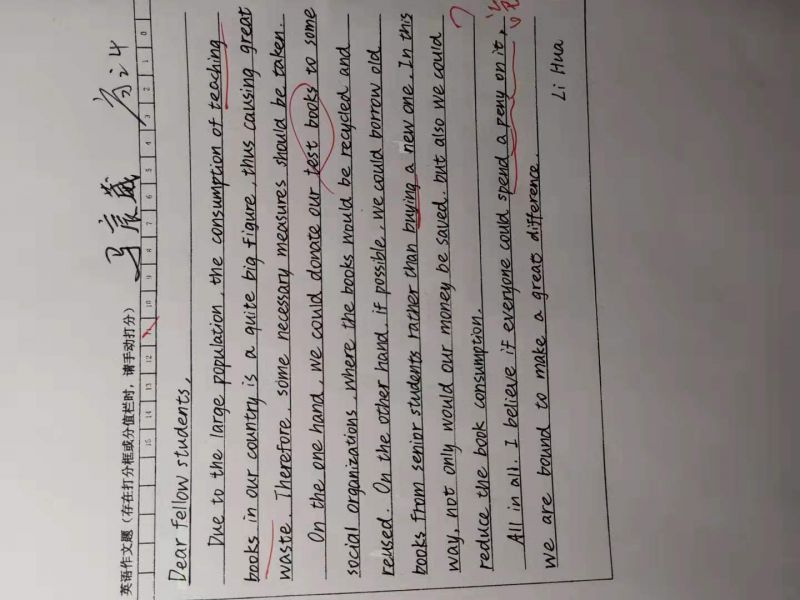 马宸葳 高二4
英语作文题（存在打分框或分值栏时，请手动打分）
15 14 13 12 11 10 9 8 7 6 5 4 3 2 1 0
Dear fellow students,
Due to the large population, the consumption of teaching
books in our country is a quite big figure, thus causing great
waste. Therefore, some necessary measures should be taken.
On the one hand, we could donate our test books to some
social organizations, where the books would be recycled and
reused. On the other hand, if possible, we could borrow old
books from senior students rather than buying a new one. In this
way, not only would our money be saved, but also we could
reduce the book consumption.
All in all, I believe if everyone could spend a peny on it,
we are bound to make a great difference.
Li Hua